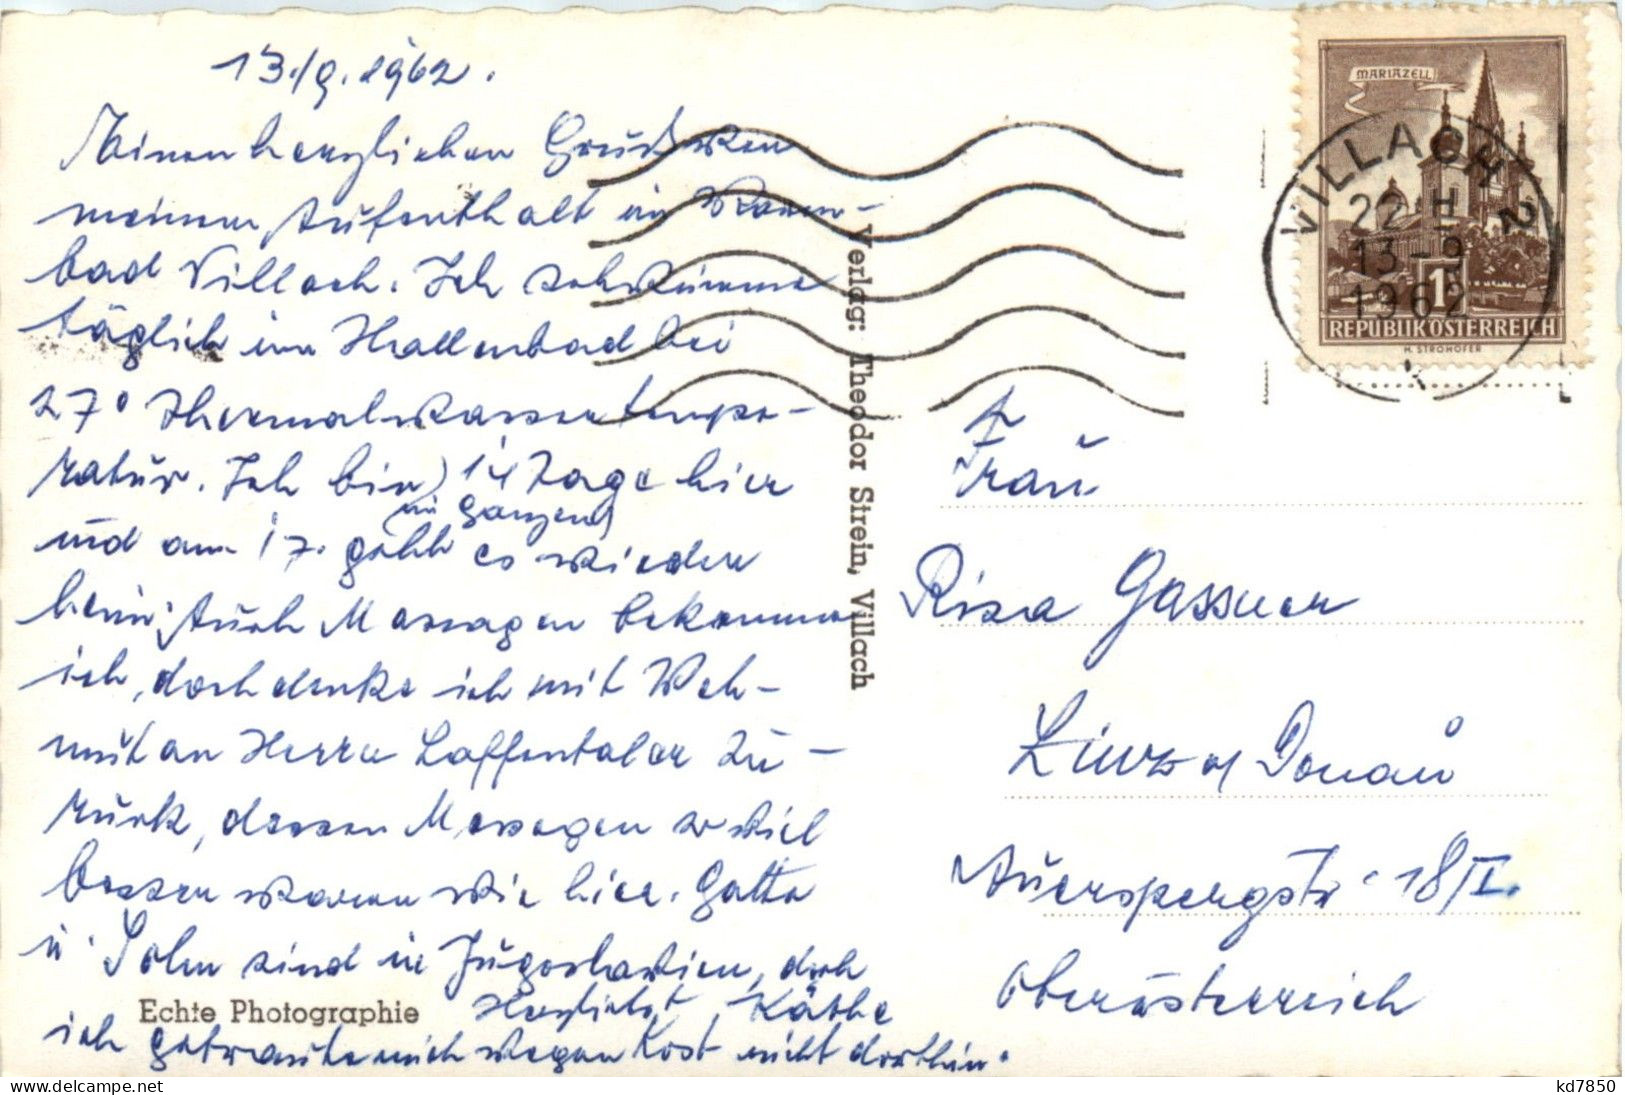 13./9. 1962.
Meinen herzlichen Gruß von
meinem Aufenthalt in Warm-
bad Villach. Ich schwimme
täglich im Hallenbad bei
27° Thermalwassertempe-
ratur. Ich bin 14 Tage hier
(im Ganzen)
und am 17. geht es wieder
heim. Auch Massagen bekomme
ich, doch denke ich mit Weh-
mut an Herrn Laffentaler zu-
rück, dessen Massagen so viel
besser waren wie hier. Gatte
u. Sohn sind in Jugoslavien, doch
ich getraute mich wegen Kost nicht dorthin.
Herzlichst Käthe
Echte Photographie
Verlag: Theodor Strein, Villach
MARIAZELL
1
REPUBLIK ÖSTERREICH
H. STROHOFER
VILLACH 2
22 H
13-9
1962
Frau
Risa Gassner
Linz a/ Donau
Auerspergstr. 18/I.
Oberösterreich
www.delcampe.net
kd7850